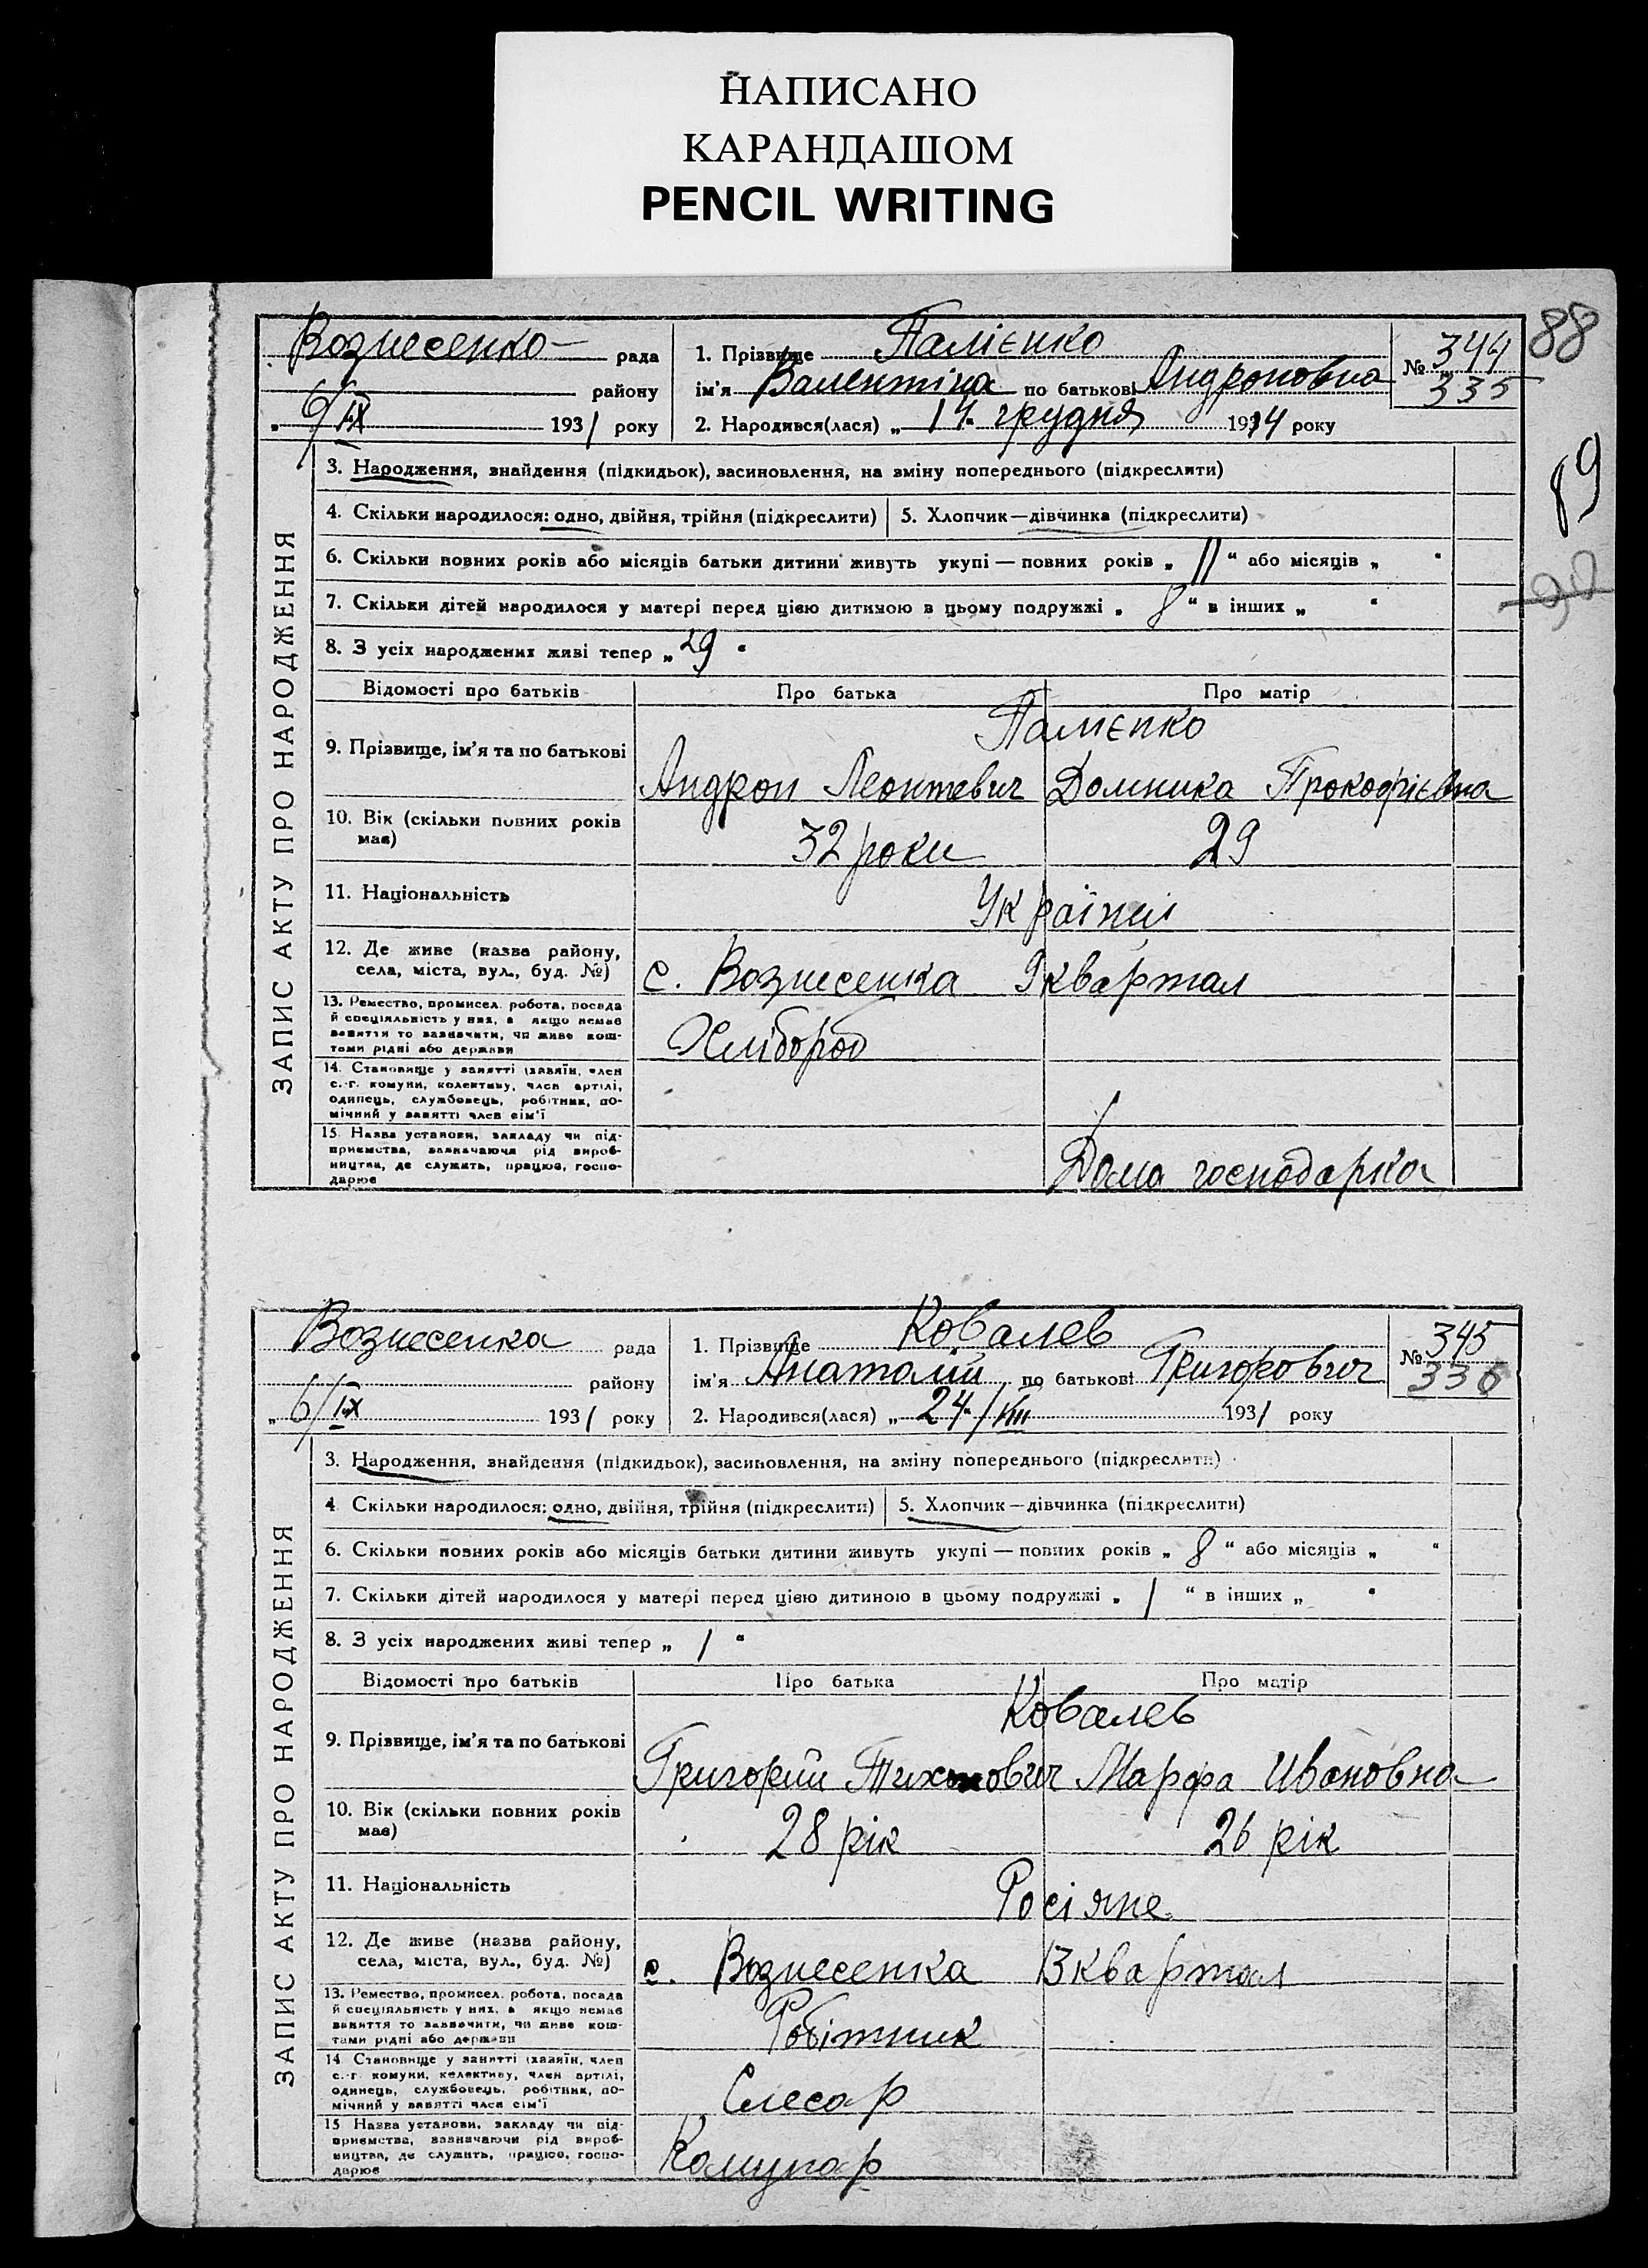 НАПИСАНО
КАРАНДАШОМ
PENCIL WRITING
88
89
90
Вознесенко— рада
району
„6/IX 1931 року
1. Прізвище Палієнко
ім'я Валентіна по батькові Андроновна
№ 344
335
2. Народився(лася) „ 14 грудня 1914 року
ЗАПИС АКТУ ПРО НАРОДЖЕННЯ
3. Народження, знайдення (підкидьок), засиновлення, на зміну попереднього (підкреслити)
4. Скільки народилося: одно, двійня, трійня (підкреслити) 5. Хлопчик—дівчинка (підкреслити)
6. Скільки повних років або місяців батьки дитини живуть укупі — повних років „ 11 “ або місяців „ “
7. Скільки дітей народилося у матері перед цією дитиною в цьому подружжі „ 8 “ в інших „ “
8. З усіх народжених живі тепер „ 29 “
Відомості про батьків Про батька Про матір
9. Прізвище, ім'я та по батькові
Палієнко
Андрон Леонтевич Домника Прокофієвна
10. Вік (скільки повних років має) 32 роки 29
11. Національність Українці
12. Де живе (назва району, села, міста, вул., буд. №) с. Вознесенка 9 квартал
13. Ремество, промисел, робота, посада
й спеціяльність у них, а якщо немає
заняття то зазначити, чи живе кош-
тами рідні або держави
Хлібороб
14. Становище у занятті (хазяїн, член
с.-г. комуни, колективу, член артілі,
одинець, службовець, робітник, по-
мічний у занятті член сім'ї
15. Назва установи, закладу чи під-
приємства, зазначаючи рід вироб-
ництва, де служить, працює, госпо-
дарює
Дома господарка
Вознесенка рада
району
„6/IX 1931 року
1. Прізвище Ковалев
ім'я Анатолій по батькові Григорович
№ 345
336
2. Народився(лася) „ 24/VIII 1931 року
ЗАПИС АКТУ ПРО НАРОДЖЕННЯ
3. Народження, знайдення (підкидьок), засиновлення, на зміну попереднього (підкреслити)
4 Скільки народилося: одно, двійня, трійня (підкреслити) 5. Хлопчик—дівчинка (підкреслити)
6. Скільки повних років або місяців батьки дитини живуть укупі — повних років „ 8 “ або місяців „ “
7. Скільки дітей народилося у матері перед цією дитиною в цьому подружжі „ 1 “ в інших „ “
8. З усіх народжених живі тепер „ 1 “
Відомості про батьків Про батька Про матір
9. Прізвище, ім'я та по батькові
Ковалев
Григорий Тихонович Марфа Ивановна
10. Вік (скільки повних років має) 28 рік 26 рік
11. Національність Росіяне
12. Де живе (назва району, села, міста, вул., буд. №) с. Вознесенка 13 квартал
13. Ремество, промисел, робота, посада
й спеціяльність у них, а якщо немає
заняття то зазначити, чи живе кош-
тами рідні або держави
Робітник
14 Становище у занятті (хазяїн, член
с.-г. комуни, колективу, член артілі,
одинець, службовець, робітник, по-
мічний у занятті член сім'ї
Слесар
15 Назва установи, закладу чи під-
приємства, зазначаючи рід вироб-
ництва, де служить, працює, госпо-
дарює
Комунар